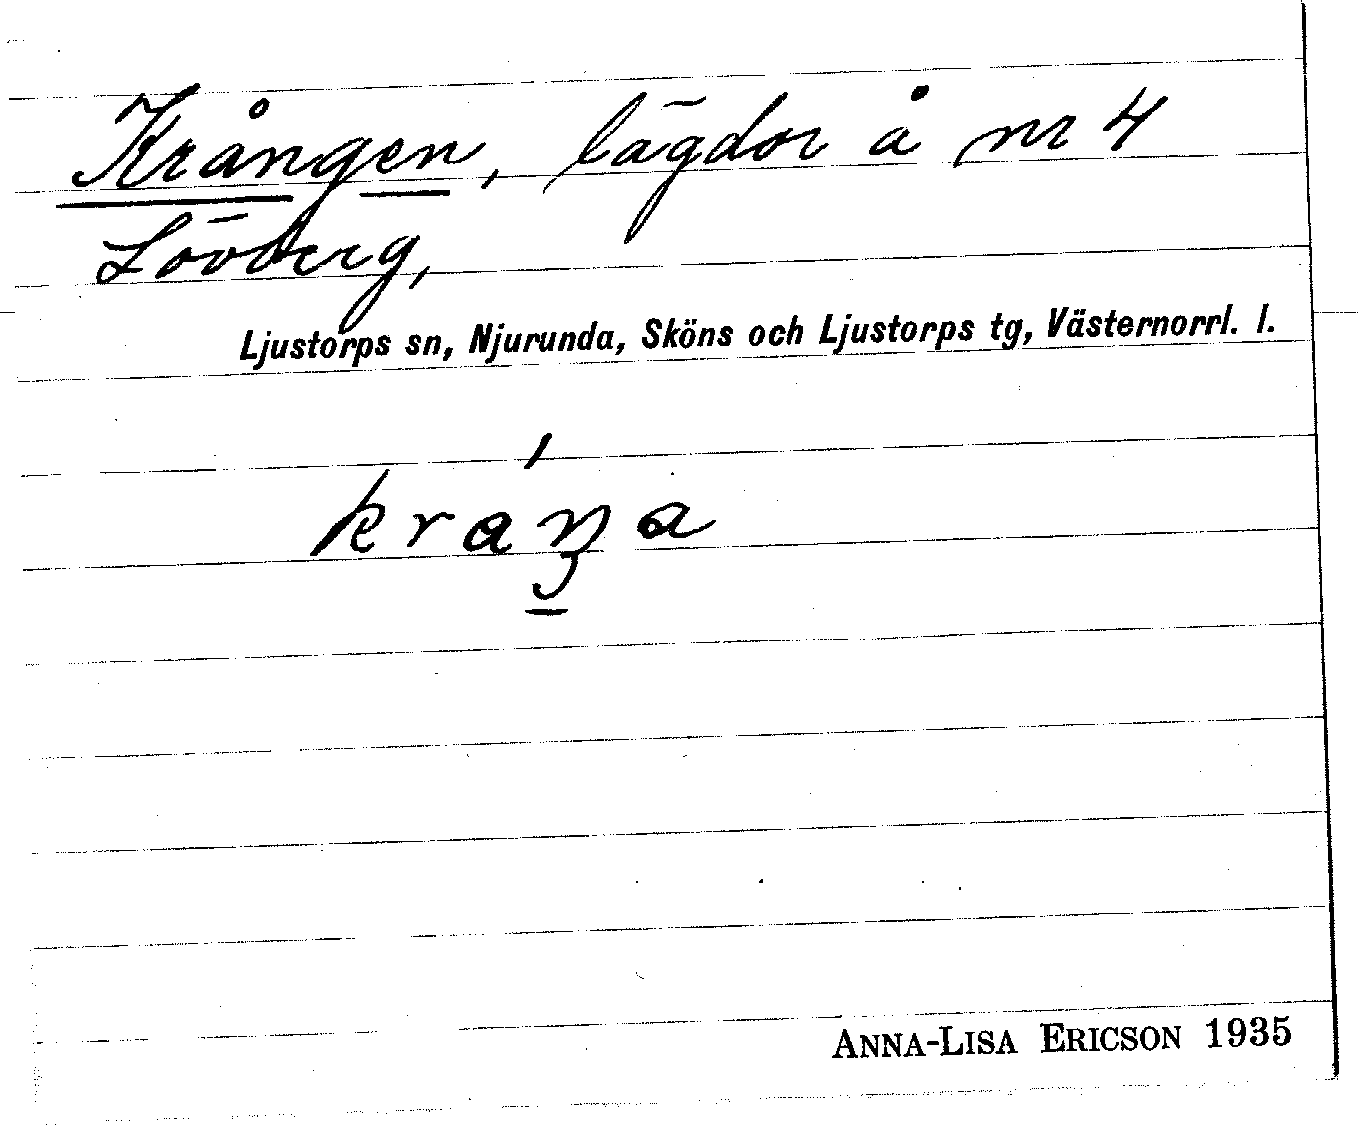 Krången, lägdor å nr 4
Lövberg,
Ljustorps sn, Njurunda, Sköns och Ljustorps tg, Västernorrl. l.
ANNA-LISA ERICSON 1935